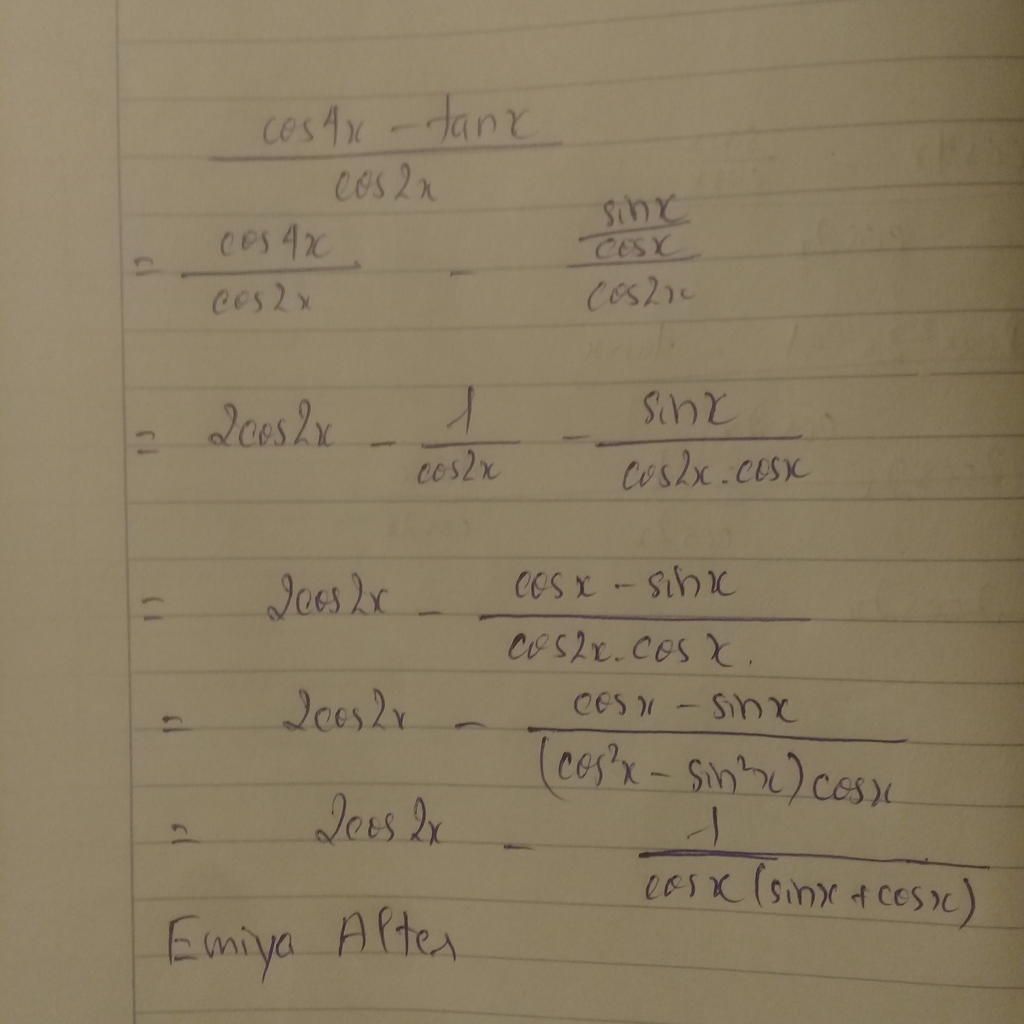 cos4x - tanx / cos2x
= cos4x / cos2x - sinx / cosx / cos2x
= 2cos2x - 1 / cos2x - sinx / cos2x . cosx
= 2cos2x - cosx - sinx / cos2x . cosx.
= 2cos2x - cosx - sinx / (cos²x - sin²x) cosx
= 2cos2x - 1 / cosx (sinx + cosx)
Emiya Alter